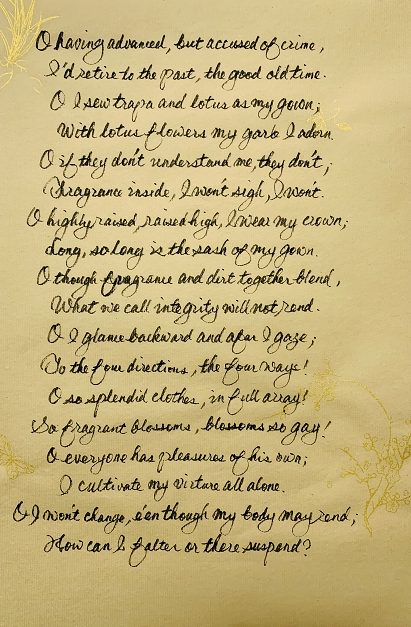 O having advanced, but accused of crime,
I'd retire to the past, the good old time.
O I sew trapa and lotus as my gown;
With lotus flowers my garb I adorn.
O if they don't understand me, they don't;
Fragrance inside, I won't sigh, I wont.
O highly raised, raised high, I wear my crown;
Long, so long is the sash of my gown.
O though fragrance and dirt together blend,
What we call integrity will not rend.
O I glance backward and afar I gaze;
To the four directions, the four ways!
O so splendid clothes, in full array!
So fragrant blossoms, blossoms so gay!
O everyone has pleasures of his own;
I cultivate my virture all alone.
O I won't change, e'en though my body may rend;
How can I falter or there suspend?